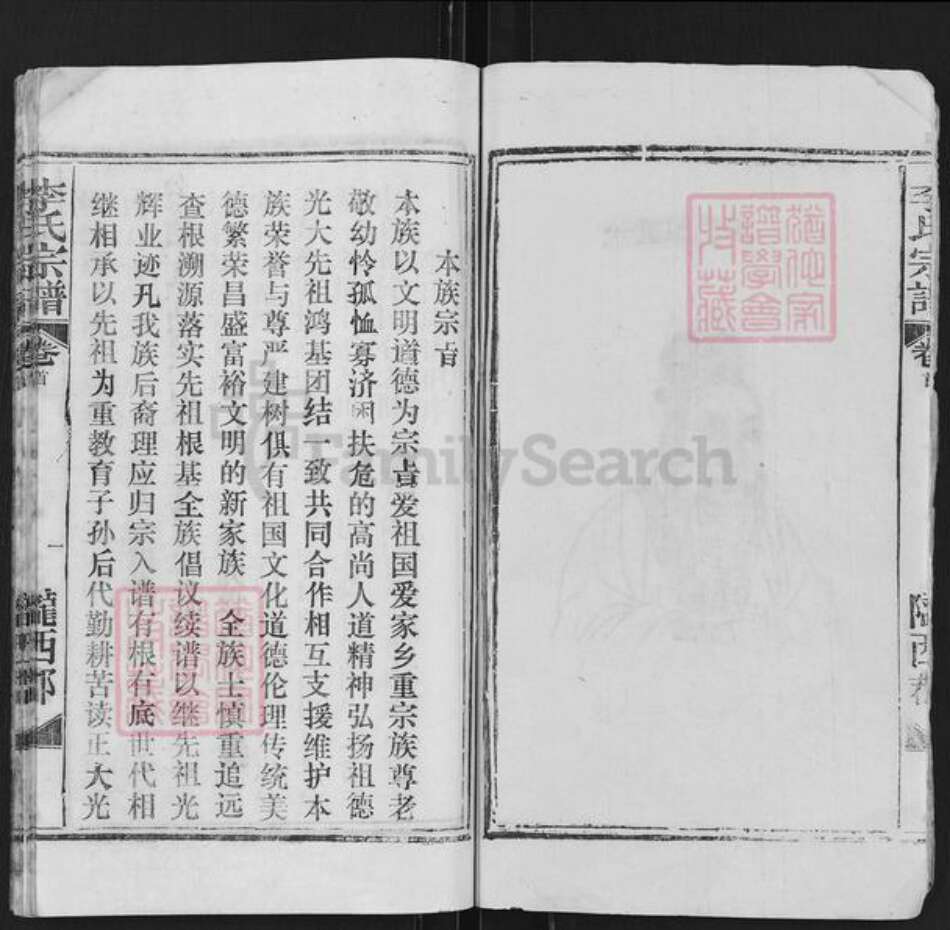 李氏宗譜
卷首
隴西郡
猶他家
譜學會
收藏
本族宗旨
本族以文明道德为宗旨爱祖国爱家乡重宗族尊老
敬幼怜孤恤寡济困扶危的高尚人道精神弘扬祖德
光大先祖鸿基团结一致共同合作相互支援维护本
族荣誉与尊严建树俱有祖国文化道德伦理传统美
德繁荣昌盛富裕文明的新家族 全族士慎重追远
查根溯源落实先祖根基全族倡议续谱以继先祖光
辉业迹孔我族后裔理应归宗入谱有根有底世代相
继相承以先祖为重教育子孙后代勤耕苦读正大光
李氏宗譜
卷首
一
隴西郡
FamilySearch